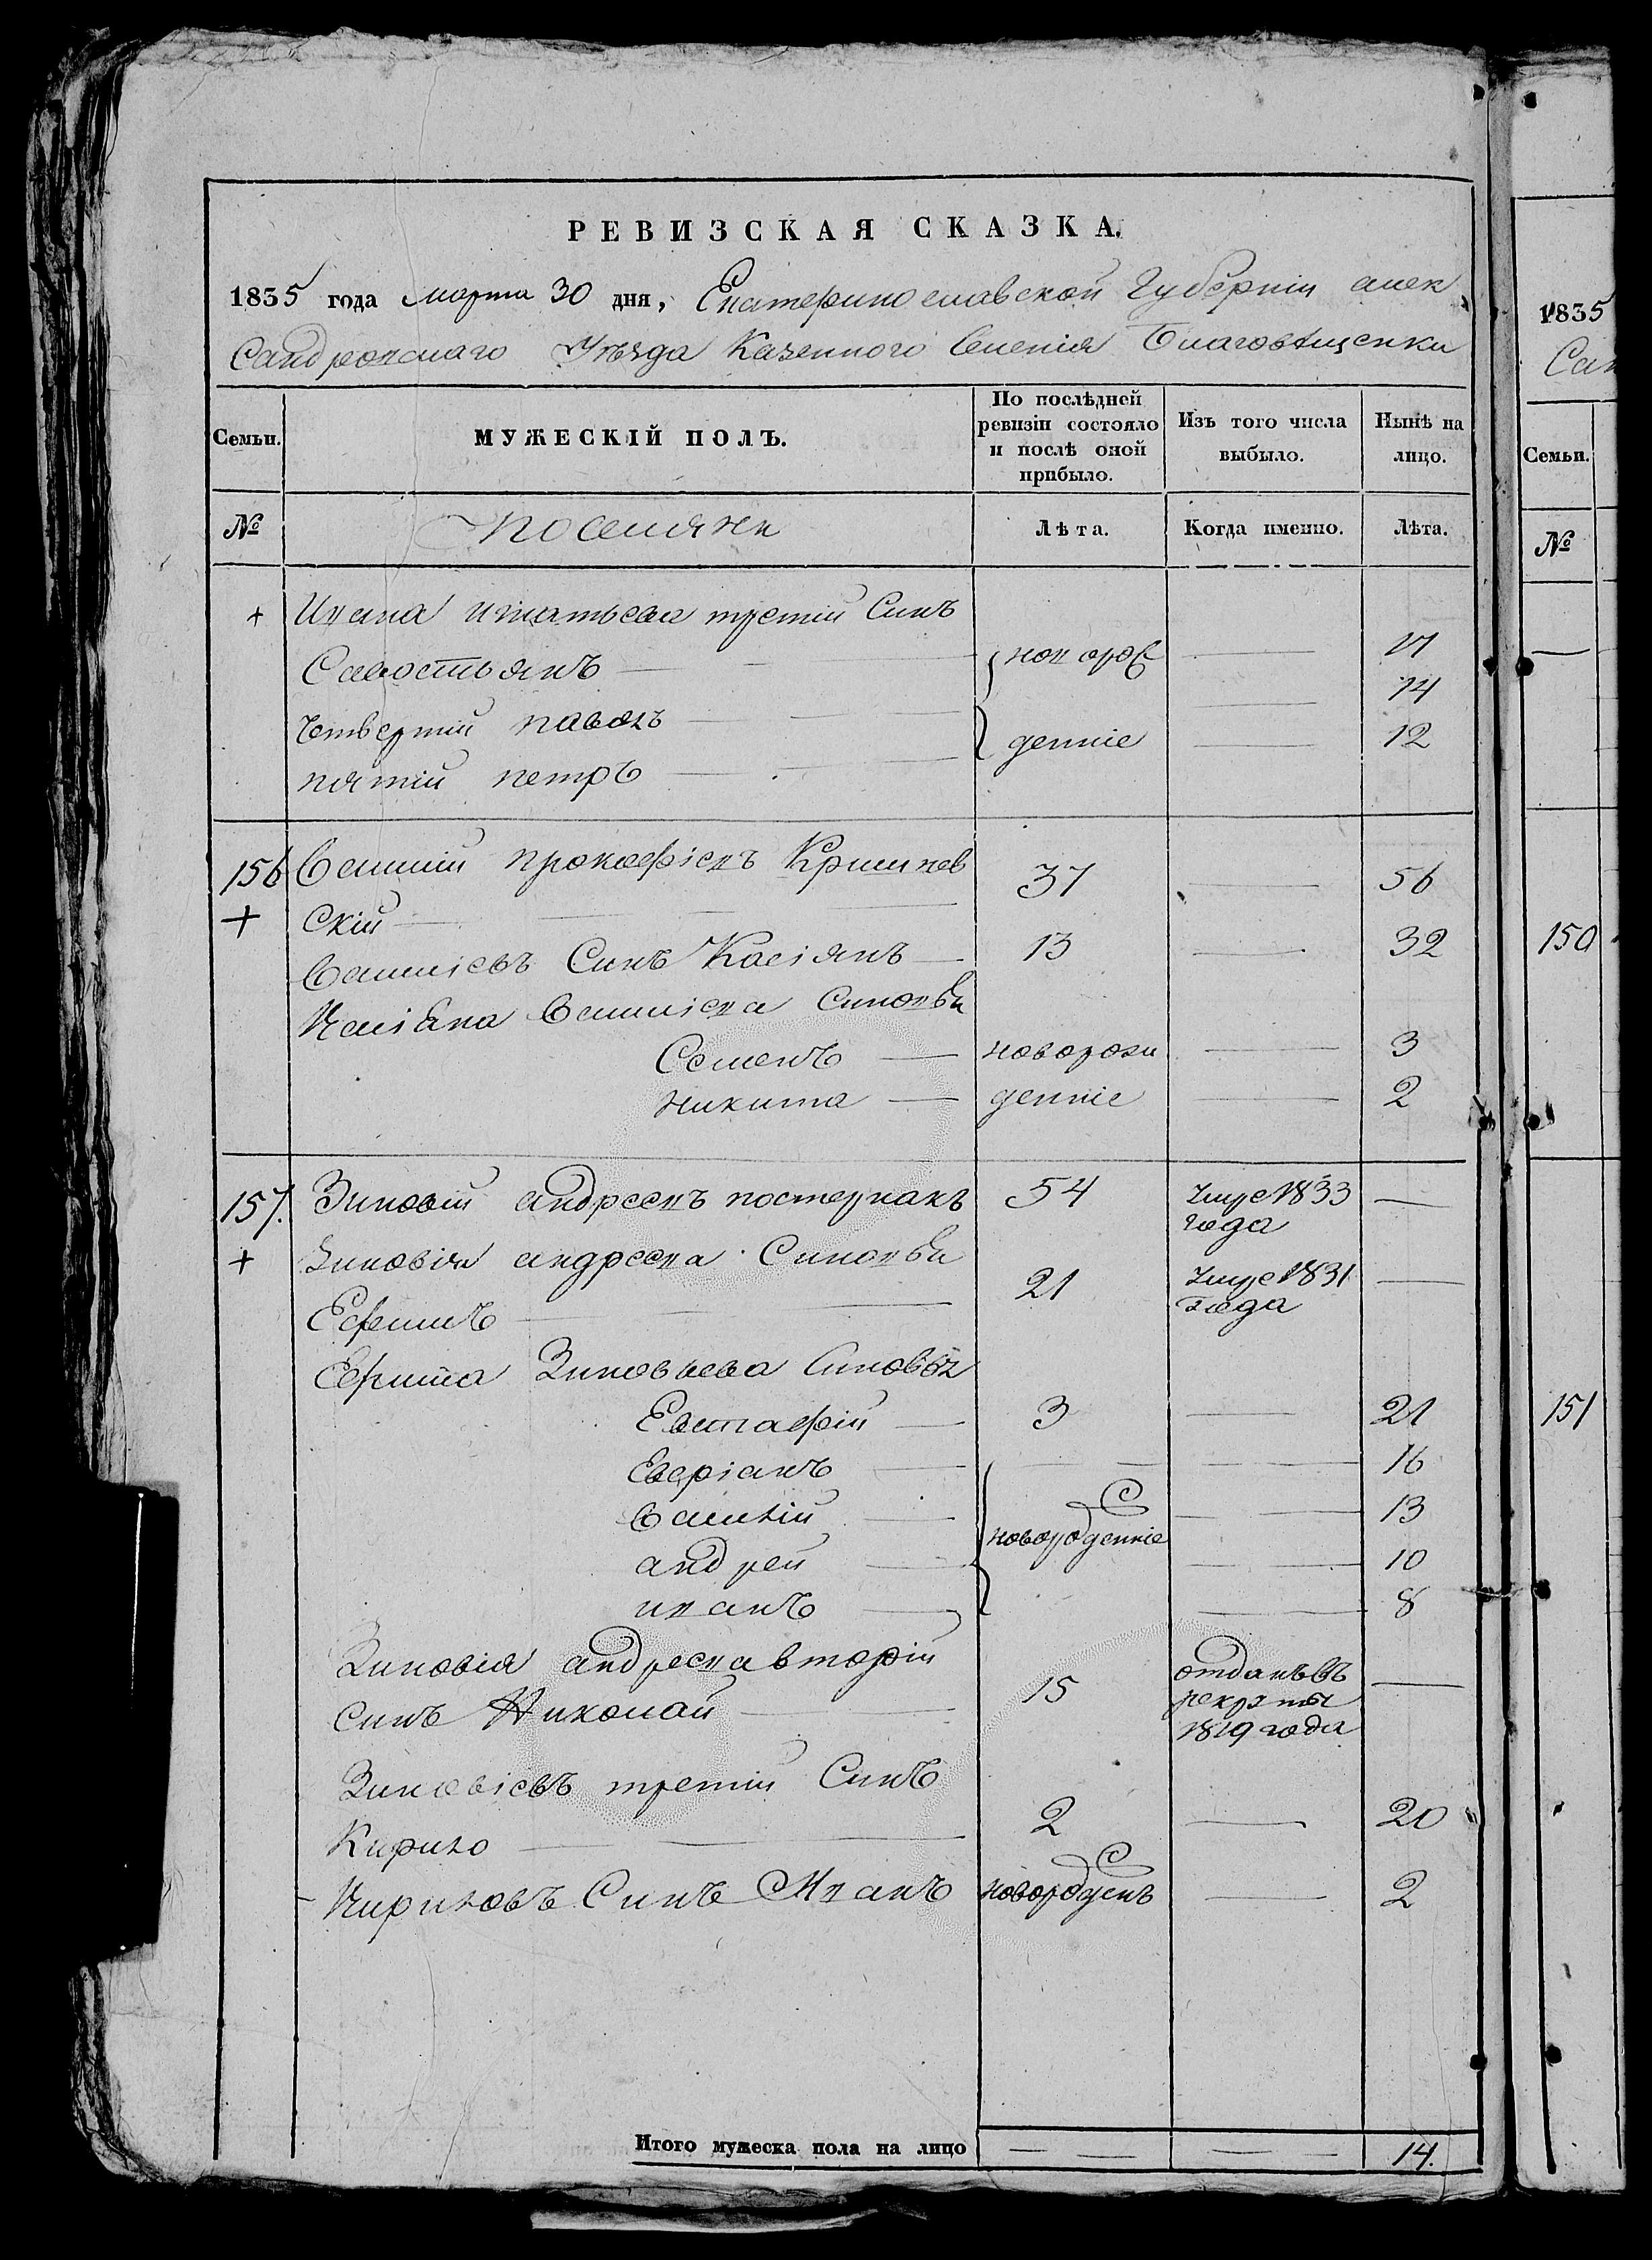 РЕВИЗСКАЯ СКАЗКА.
1835 года марта 30 дня, Екатеринославской Губерніи алек
сандровскаго Уѣзда Казенного Селенія Благовѣщенки
Семьи. МУЖЕСКІЙ ПОЛЪ. По послѣдней ревизіи состояло и послѣ оной прибыло. Изъ того числа выбыло. Нынѣ на лицо.
№ поселяне Лѣта. Когда именно. Лѣта.
+ Ивана игнатьева третій Синъ
Савостьянъ — новорож — 17
четвертій павелъ — — 14
пятій петръ — денніе — 12
156 Василий прокофіевъ Кришнев 37 — 56
+ скій —
Василіевъ Синъ Касіянъ — 13 — 32
Касіана Василіева Синовья
Семенъ — новорож — 3
никита — денніе — 2
157. Зиновій андреевъ постернакъ 54 умре 1833 —
года
+ Зиновія андреева Синовья
Ефимъ — 21 умре 1831 —
года
Ефима Зиновьева Синовья
Евстафій — 3 — 21
Аверіанъ — — — 16
Василій — новорожденніе — 13
андрей — — 10
иванъ — — 8
Зиновія андреева вторій
синъ Николай — 15 отданъ въ —
рекруты
1819 года
Зиновіевъ третій Синъ
Кирило — 2 — 20
Кириловъ Синъ Иванъ новорожденъ — 2
Итого мужеска пола на лицо — — 14.
1835
Сан
Семьи.
№
150
151